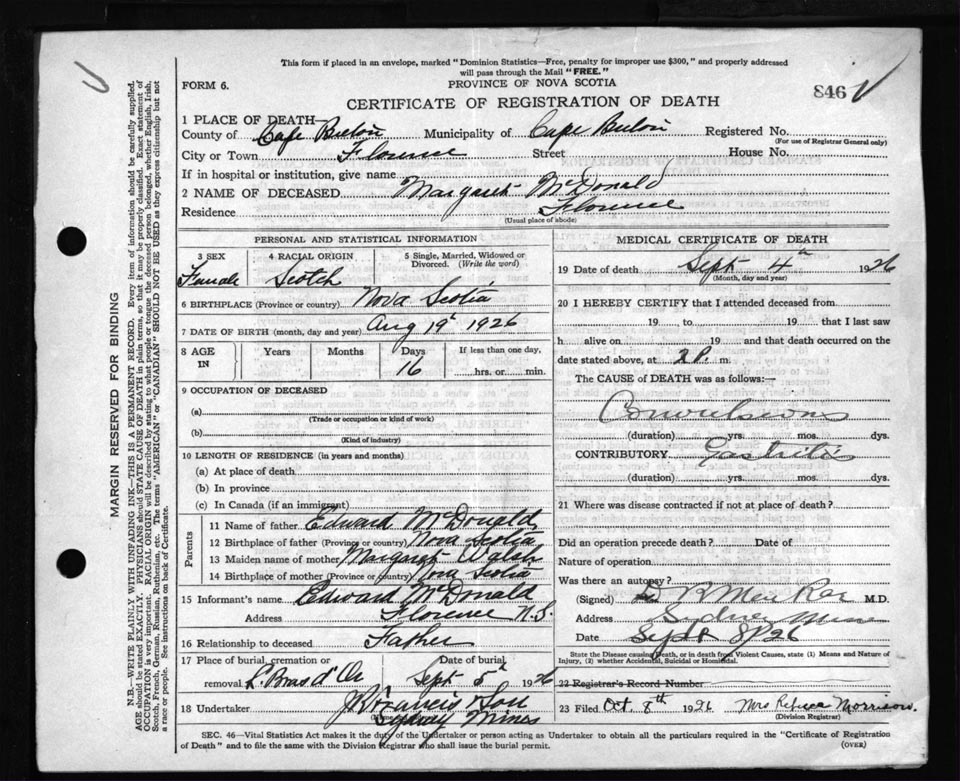 This form if placed in an envelope, marked "Dominion Statistics—Free, penalty for improper use $300," and properly addressed
will pass through the Mail "FREE."
FORM 6.
PROVINCE OF NOVA SCOTIA
846
CERTIFICATE OF REGISTRATION OF DEATH
1 PLACE OF DEATH—
County of Cape Breton Municipality of Cape Breton Registered No.
(For use of Registrar General only)
City or Town Florence Street House No.
If in hospital or institution, give name
2 NAME OF DECEASED Margaret McDonald
Residence Florence
(Usual place of abode)
PERSONAL AND STATISTICAL INFORMATION
3 SEX 4 RACIAL ORIGIN 5 Single, Married, Widowed or
Divorced. (Write the word)
Female Scotch
6 BIRTHPLACE (Province or country) Nova Scotia
7 DATE OF BIRTH (month, day and year) Aug 19th 1926
8 AGE IN Years Months Days If less than one day,
16 hrs. or min.
9 OCCUPATION OF DECEASED
(a)
(Trade or occupation or kind of work)
(b)
(Kind of industry)
10 LENGTH OF RESIDENCE (in years and months)
(a) At place of death
(b) In province
(c) In Canada (if an immigrant)
Parents
11 Name of father Edward McDonald
12 Birthplace of father (Province or country) Nova Scotia
13 Maiden name of mother Margaret Walsh
14 Birthplace of mother (Province or country) Nova Scotia
15 Informant's name Edward McDonald
Address Florence N.S.
16 Relationship to deceased Father
17 Place of burial, cremation or Date of burial
removal L. Bras d'Or Sept 5th 1926
18 Undertaker J R Francis & Son
Sydney Mines
MEDICAL CERTIFICATE OF DEATH
19 Date of death Sept 4th 1926
(Month, day and year)
20 I HEREBY CERTIFY that I attended deceased from
19 to 19 that I last saw
h alive on 19 and that death occurred on the
date stated above, at 2 P. m.
The CAUSE of DEATH was as follows:—
Convulsions
(duration) yrs. mos. dys.
CONTRIBUTORY Gastritis
(duration) yrs. mos. dys.
21 Where was disease contracted if not at place of death?
Did an operation precede death? Date of
Nature of operation
Was there an autopsy?
(Signed) M.D.
Address Sydney Mines
Date Sept 8/26
State the Disease causing Death, or in death from Violent Causes, state (1) Means and Nature of
Injury, (2) whether Accidental, Suicidal or Homicidal.
22 Registrar's Record Number
23 Filed Oct. 8th 1926 Mrs Rebecca Morrison.
(Division Registrar)
SEC. 46—Vital Statistics Act makes it the duty of the Undertaker or person acting as Undertaker to obtain all the particulars required in the "Certificate of Registration
of Death" and to file the same with the Division Registrar who shall issue the burial permit.
(OVER)
MARGIN RESERVED FOR BINDING
N.B.—WRITE PLAINLY WITH UNFADING INK—THIS IS A PERMANENT RECORD. Every item of information should be carefully supplied.
AGE should be stated EXACTLY. PHYSICIANS should STATE CAUSE OF DEATH in plain terms, so that it may be properly classified. Exact statement of
OCCUPATION is very important. RACIAL ORIGIN will be described by stating to what people or tongue the deceased person belonged, whether English, Irish,
Scotch, French, German, Russian, Ruthenian, etc. The terms "AMERICAN" or "CANADIAN" SHOULD NOT BE USED as they express citizenship but not
a race or people. See instructions on back of Certificate.